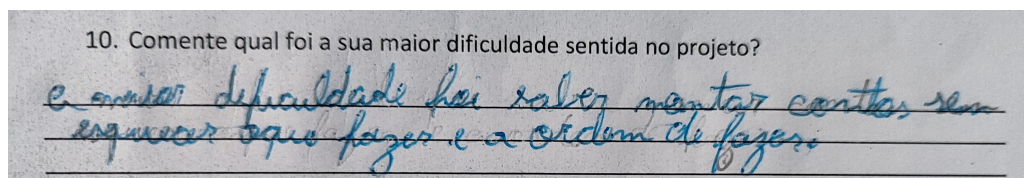 10. Comente qual foi a sua maior dificuldade sentida no projeto?
a maior dificuldade foi saber montar conttos sem
esquecer oque fazer e a ordem de fazer.